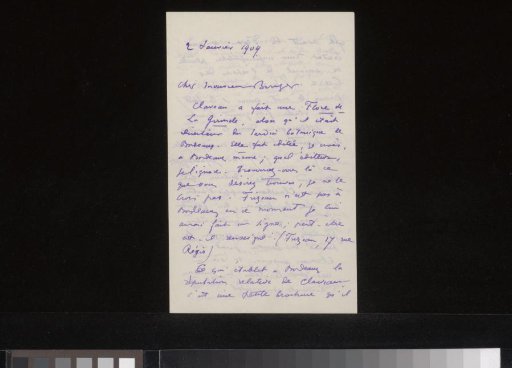 2 Janvier 1909
Cher Monsieur
Clavaud a fait une Flore de
La Gironde, alors qu'il était
directeur du Jardin botanique de
Bordeaux. Elle fut éditée, je crois,
à Bordeaux même; quel éditeur,
je l'ignore. Trouverez-vous là ce
que vous désirez trouver, je ne le
crois pas. n'est pas à
Bordeaux en ce moment je lui
aurai fait un signe; peut-être
est-il renseigné ( 17 rue
Régis)
Ce qui établit à Bordeaux la
réputation relative de Clavaud
c'est une petite brochure qu'il